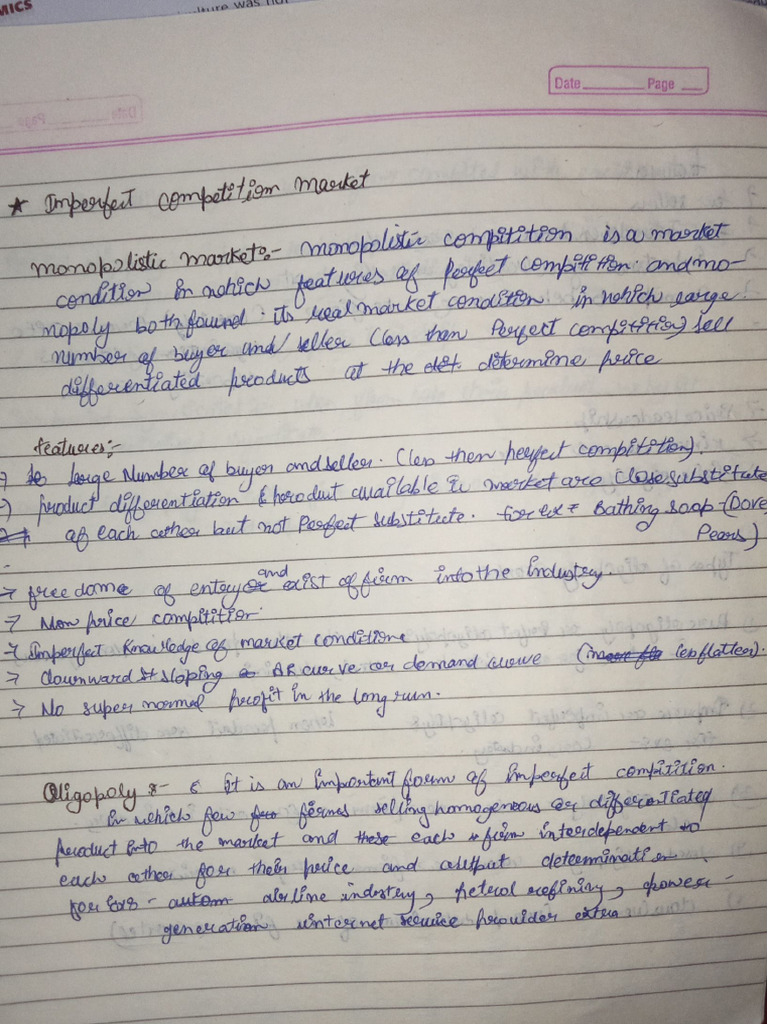 MICS
ulture was not
Date Page
★ Imperfect competition market
monopolistic market:- monopolistic compitition is a market
condition in which features of Perfect compitition. and mo-
nopoly both found. its real market condition in which large
number of buyer and seller (less then Perfect compitition) sell
differentiated products at the determine price
features:-
→ large Number of buyer and seller. (less then perfect compitition).
→ product differentiation product available in market are close substitute
of each other but not Perfect substitute. for ex = Bathing soap - (Dove,
Pears)
→ freedome of entery and exist of firm into the industry.
→ Non price compitition.
→ Imperfect knowledge of market condition
→ downward sloping AR curve or demand curve (les flatter).
→ No super normal profit in the long run.
Oligopoly :- It is an important form of imperfect compition.
in which few firms selling homogeneous or differentiated
product into the market and each firm interdependent to
each other for their price and output determination
for ex:- airline industry, petrol refining, power-
generation internet service provider extra